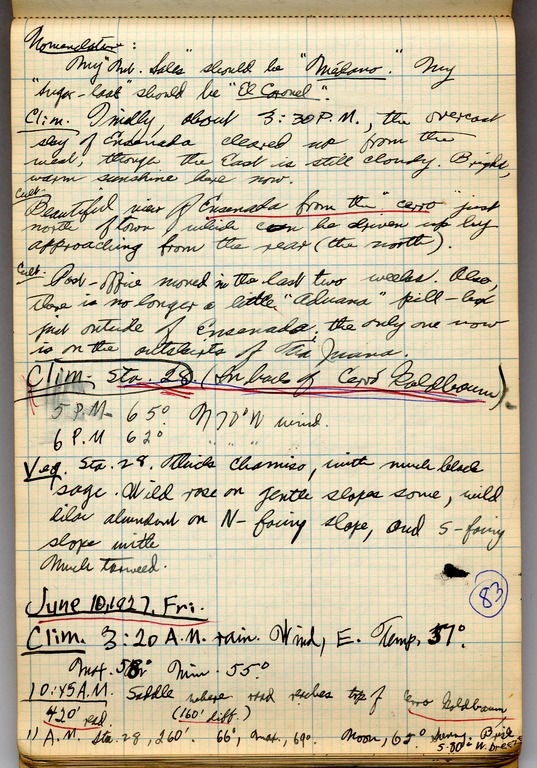 Nomenclature:
My "Mt. Salea" should be "Médano." My
"Sugar-loaf" should be "El Coronel".
Clim. Finally, about 3:30 P.M., the overcast
sky of Ensenada cleared up from the
west, though the East is still cloudy. Bright,
warm sunshine here now.
Cult.
Beautiful view of Ensenada from the "cerro" just
north of town, which can be driven up by
approaching from the rear (the north).
Cult. Post-office moved in the last two weeks. Also,
there is no longer a little "Aduana" pill-box
just outside of Ensenada; the only one now
is on the outskirts of Tia Juana.
Clim. Sta. 28 (In back of Cerro Goldbaum).
5 P.M. 65° N 70° W wind.
6 P.M 62° " " "
Veg. Sta. 28. Chamiso, with much black
sage. Wild rose on gentle slopes some, wild
lilac abundant on N-facing slope, and S-facing
slope with
Much tarweed.
83
June 10, 1927, Fri.
Clim. 3:20 A.M. rain. Wind, E. Temp. 57°
Max. 58° Min. 55°
10:45 A.M. Saddle where road reaches top of Cerro Goldbaum,
420' read. (160' diff.)
11 A.M. Sta. 28, 260'. 66°, max., 69° Noon, 65° Sunny. Brisk
S. 80° W. breeze